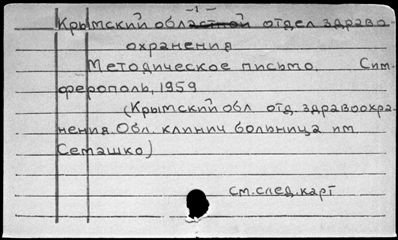 -1-
Крымский областной отдел здраво-
охранения
Методическое письмо. Сим-
ферополь, 1959
(Крымский обл. отд. здравоохра-
нения. Обл. клинич больница им
Семашко)
см. след. карт